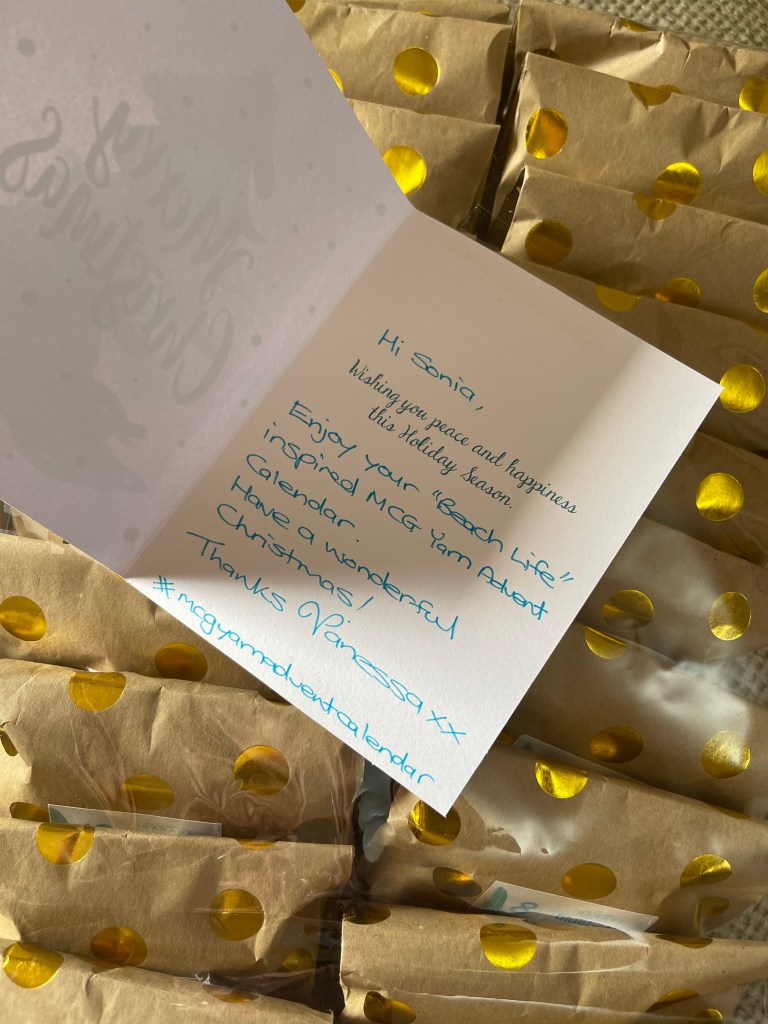 Merry
Christmas
Hi Sonia,
Wishing you peace and happiness
this Holiday Season.
Enjoy your "Beach Life"
inspired MCG Yarn Advent
Calendar.
Have a wonderful
Christmas!
Thanks Vanessa xx
#mcgyarnadventcalendar
8